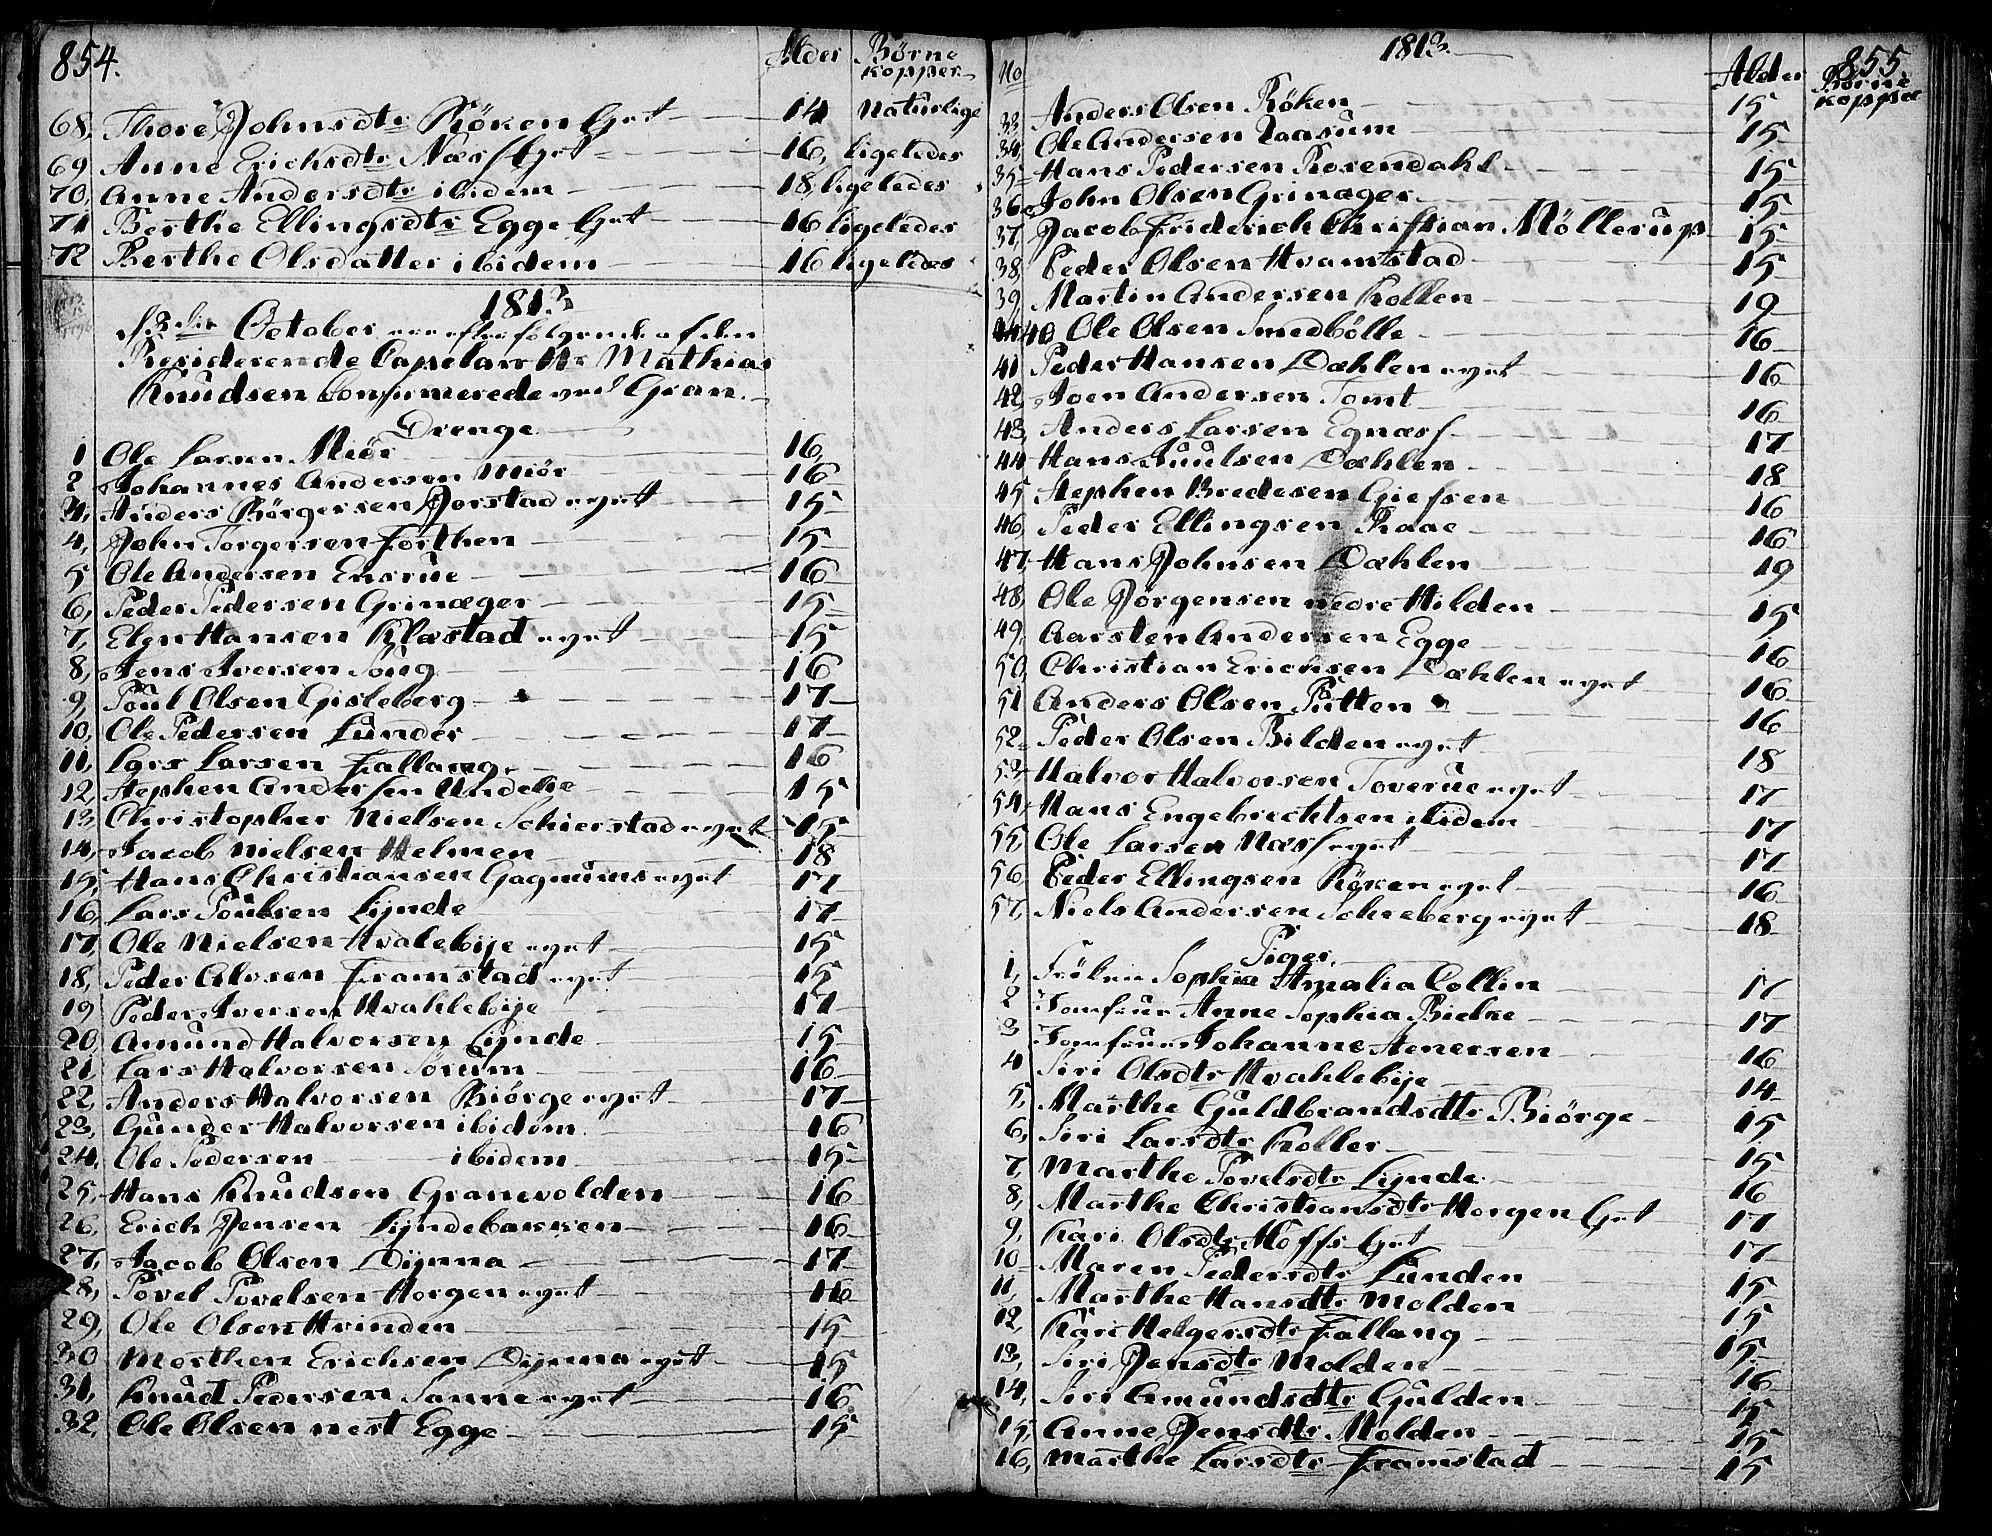 854.
Alder Børne
kopper
68, Thore Johnsdtr Röken Gut 14 naturlige
69 Anne Erichsdtr Næss Gut 16, ligeledes
70, Anne Andersdtr ibidem 18, ligeledes
71 Berthe Ellingsdtr Egge Gut 16 ligeledes
72 Berthe Olsdatter ibidem 16 ligeledes
1813
October ere efterfølgende af den
Residerende Capelan Hr Mathias
Knudsen Confirmerede ved Gran.
Drenge
1 Ole Larsen Miör 16,
2 Johannes Andersen Miör 16
3, Anders Börgersen Jorstad eyet 15
4, John Torgersen Forthen 15
5 Ole Andersen Ensrue 16
6, Peder Pedersen Grinæger 15
7, Elen Hansen Klæstad eyet 15
8, Jens Iversen Soug 16
9, Poul Olsen Gisleberg 17
10, Ole Pedersen Lunder 17
11, Lars Larsen Fallang 16
12, Stephen Andersen Undelie 15
13, Christopher Nielsen Schierstad eyet 15
14, Jacob Nielsen Helmen 18
15, Hans Christiansen Gagnums eyet 17
16, Lars Poulsen Lynde 17
17, Ole Nielsen Hvalebye eyet 15
18, Peder Alvsen Framstad eyet 15
19 Peder Iversen Hvahlebye 17
20 Amund Halvorsen Lynde 15
21, Lars Halvorsen Sörum 16
22, Anders Halvorsen Biörge eyet 17
23, Gunder Halvorsen ibidem 16
24, Ole Pedersen ibidem 15
25, Hans Knudsen Granevolden 16
26, Erich Jensen Lyndebakken 16
27, Jacob Olsen Dynna 17
28, Povel Povelsen Horgen eyet 16
29, Ole Olsen Hvinden 15
30 Morthen Erichsen Dynna eyet 15
31, Knud Pedersen Sanne eyet 16
32, Ole Olsen nest Egge 15
No 1813. Alder 855
Börne
kopper
33, Anders Olsen Röken 15
34, Ole Andersen Raasum 15
35 Hans Pedersen Rosendahl 15
36 John Olsen Grinæger 15
37, Jacob Friderich Christian Möllerup 15
38, Peder Olsen Hvamstad 15
39, Martin Andersen Kollen 19
40 Ole Olsen Smedbölle 16
41 Peder Hansen Dæhlen eyet 16
42, Joen Andersen Tomt 16
43, Anders Larsen Egnæss 17
44 Hans Juulsen Dæhlen 18
45 Stephen Bredesen Giefsen 16
46, Peder Ellingsen Raae 16
47, Hans Johnsen Dæhlen 19
48, Ole Jörgensen nedre Hilden 15
49, Aarsten Andersen Egge 16
50, Christian Erichsen Dæhlen eyet 16
51 Anders Olsen Putten 16
52 Peder Olsen Bilden eyet 18
53 Halvor Halvorsen Toverue eyet 17
54, Hans Engebrechtsen ibidem 17
55, Ole Larsen Næss eyet 17
56, Peder Ellingsen Röken eyet 16
57, Niels Andersen Schieberg eyet 18
Piger.
1, Fröken Sophia Amalia Collin 17
2 Jomfrue Anne Sophia Bielke 17
3 Jomfrue Johanne Stenersen 16
4 Siri Olsdtr Hvahlebye 14
5, Marthe Guldbrandsdtr Biörge 15
6, Siri Larsdtr Koller 15
7, Marthe Povelsdtr Lynde 16
8, Marthe Christiansdtr Horgen Gut 17
9, Kari Olsdtr Hoffs Gut 17
10 Maren Pedersdtr Lunden 15
11, Marthe Hansdtr Molden 15
12, Kari Helgersdtr Fallang 15
13, Siri Jensdtr Molden 16
14, Siri Amundsdtr Gulden 15
15, Anne Jensdtr Molden 15
16, Marthe Larsdtr Framstad 15